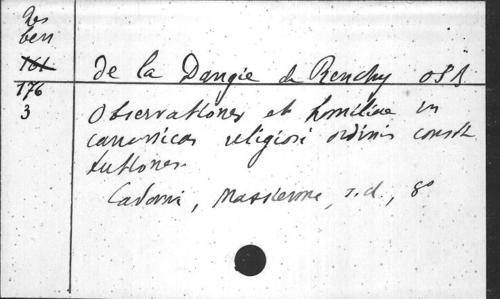 Res
ben
161
176
3
de la Dangie de Renchy OSB
Observationes et homiliae in
canonicas religiosi ordinis consti
tutiones
Cadomi, Massienne, s.d., 8°